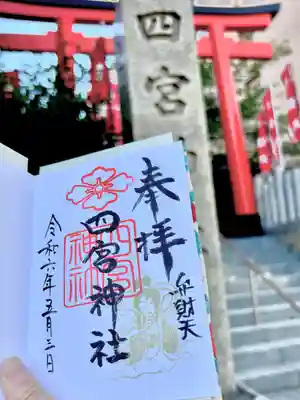 四宮
奉拝
四宮神社
弁財天
令和六年五月三日